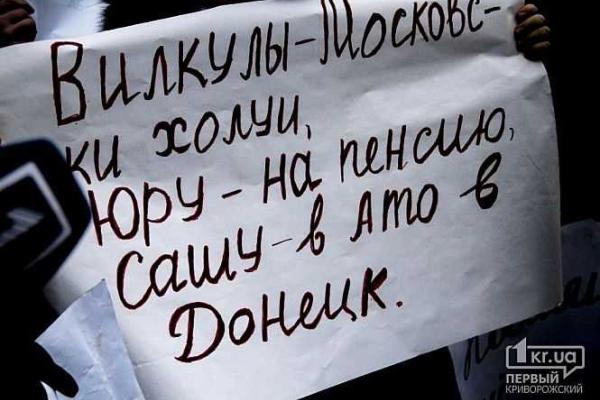 Вилкулы-Московс-
ки холуи,
Юру - на пенсию,
Сашу - в АТО в
Донецк.
1kr.ua
ПЕРВЫЙ
КРИВОРОЖСКИЙ